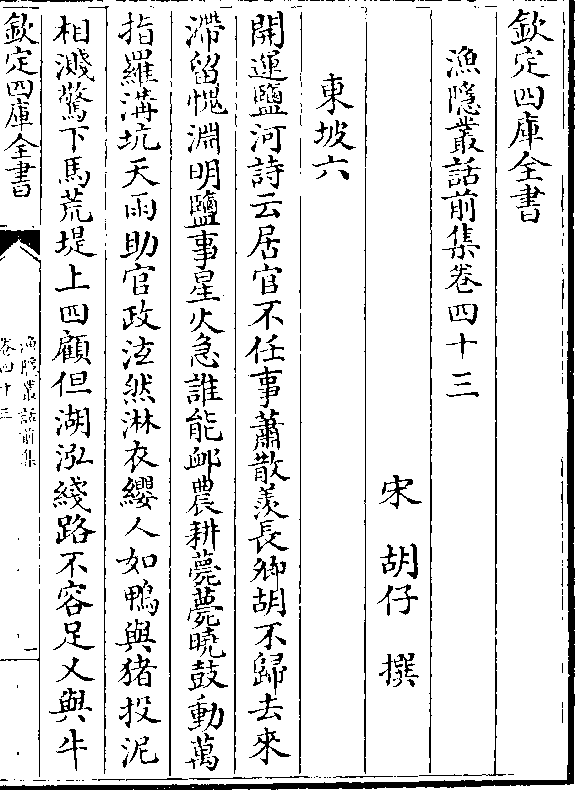 欽定四庫全書
漁隱叢話前集卷四十三
宋 胡仔 撰
東坡六
開運鹽河詩云居官不任事蕭散羨長卿胡不歸去來
滯留愧淵明鹽事星火急誰能䘏農耕薨薨曉鼓動萬
指羅溝坑天雨助官政泫然淋衣纓人如鴨與猪投泥
相濺驚下馬荒堤上四顧但湖泓綫路不容足又與牛
欽定四庫全書
漁隱叢話前集
卷四十三
一